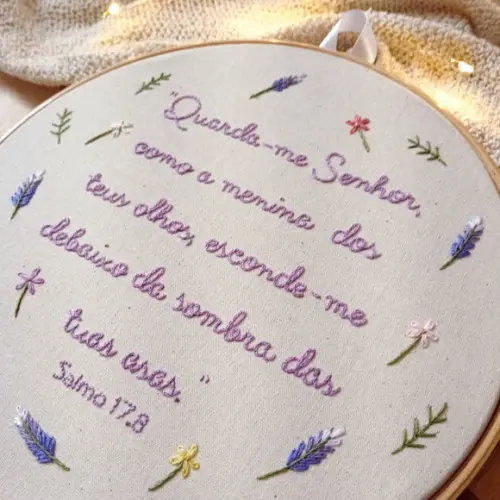 "Guarda-me Senhor,
como a menina dos
teus olhos, esconde-me
debaixo da sombra das
tuas asas."
Salmo 17.8